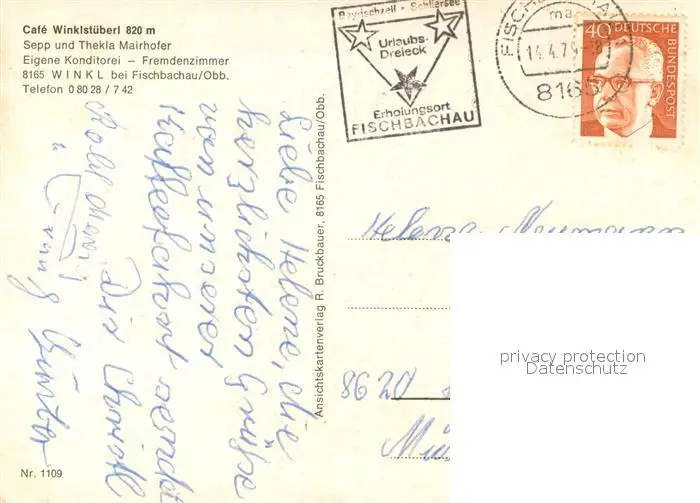 Café Winklstüberl 820 m
Sepp und Thekla Mairhofer
Eigene Konditorei – Fremdenzimmer
8165 WINKL bei Fischbachau/Obb.
Telefon 0 80 28 / 7 42
Bayrischzell - Schliersee
Urlaubs-
Dreieck
Erholungsort
FISCHBACHAU
14.4.7
8165
40 DEUTSCHE
BUNDESPOST
Liebe Helene, die
herzlichsten Grüße
von unserer
Kaffeefahrt sendet
Dir
Günter
Ansichtskartenverlag R. Bruckbauer, 8165 Fischbachau/Obb.
Helene Neumann
8620
privacy protection
Datenschutz
Nr. 1109